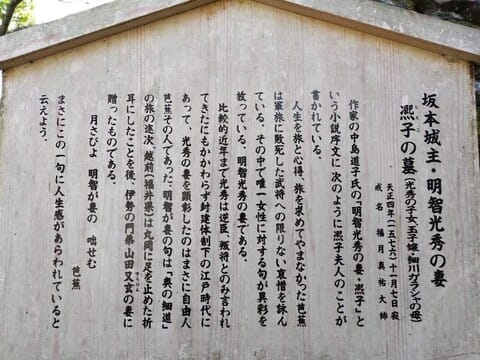 坂本城主・明智光秀の妻
凞子の墓(光秀の子女、玉子嬢=細川ガラシャの母)
天正四年(一五七六)十一月七日寂
戒名 福月真祐大姉
作家の中島道子氏の、「明智光秀の妻・凞子」と
いう小説序文に 次のように凞子夫人のことが
書かれている。
人生を旅と心得、旅を求めてやまなかった芭蕉
は軍旅に敗死した武将への限りない哀憎を詠ん
ている。その中で唯一女性に対する句が異彩を
放っている。明智光秀の妻である。
比較的近年まで光秀は逆臣、叛将とのみ言われ
てきたにもかかわらず封建体制下の江戸時代に
あって、光秀の妻を顕彰したのはまさに自由人
芭蕉その人であった。明智が妻の句は「奥の細道」
の旅の途次、越前(福井県)は丸岡に足を止めた折
耳にしたことを後、伊勢の門弟山田又玄の妻に
贈ったものである。
月さびよ 明智が妻の 咄せむ
芭蕉
まさにこの一句に人生感があらわれていると
云えよう。